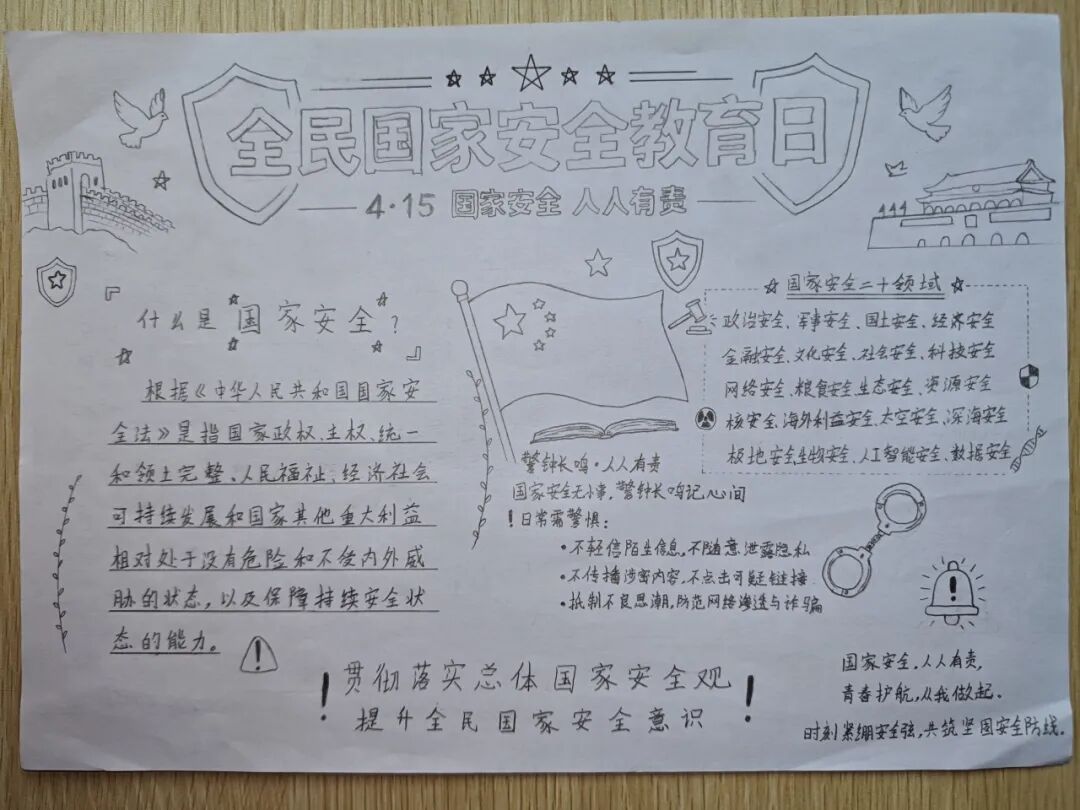 全民国家安全教育日
4·15 国家安全 人人有责
『什么是国家安全？』
根据《中华人民共和国国家安
全法》是指国家政权、主权、统一
和领土完整、人民福祉、经济社会
可持续发展和国家其他重大利益
相对处于没有危险和不受内外威
胁的状态，以及保障持续安全状
态的能力。
警钟长鸣·人人有责
国家安全无小事，警钟长鸣记心间
！日常需警惕：
·不轻信陌生信息，不随意泄露隐私
·不传播涉密内容，不点击可疑链接
·抵制不良思潮，防范网络渗透与诈骗
国家安全二十领域
政治安全、军事安全、国土安全、经济安全
金融安全、文化安全、社会安全、科技安全
网络安全、粮食安全、生态安全、资源安全
核安全、海外利益安全、太空安全、深海安全
极地安全、生物安全、人工智能安全、数据安全
！贯彻落实总体国家安全观！
提升全民国家安全意识
国家安全，人人有责，
青春护航，从我做起．
时刻紧绷安全弦，共筑坚固安全防线．